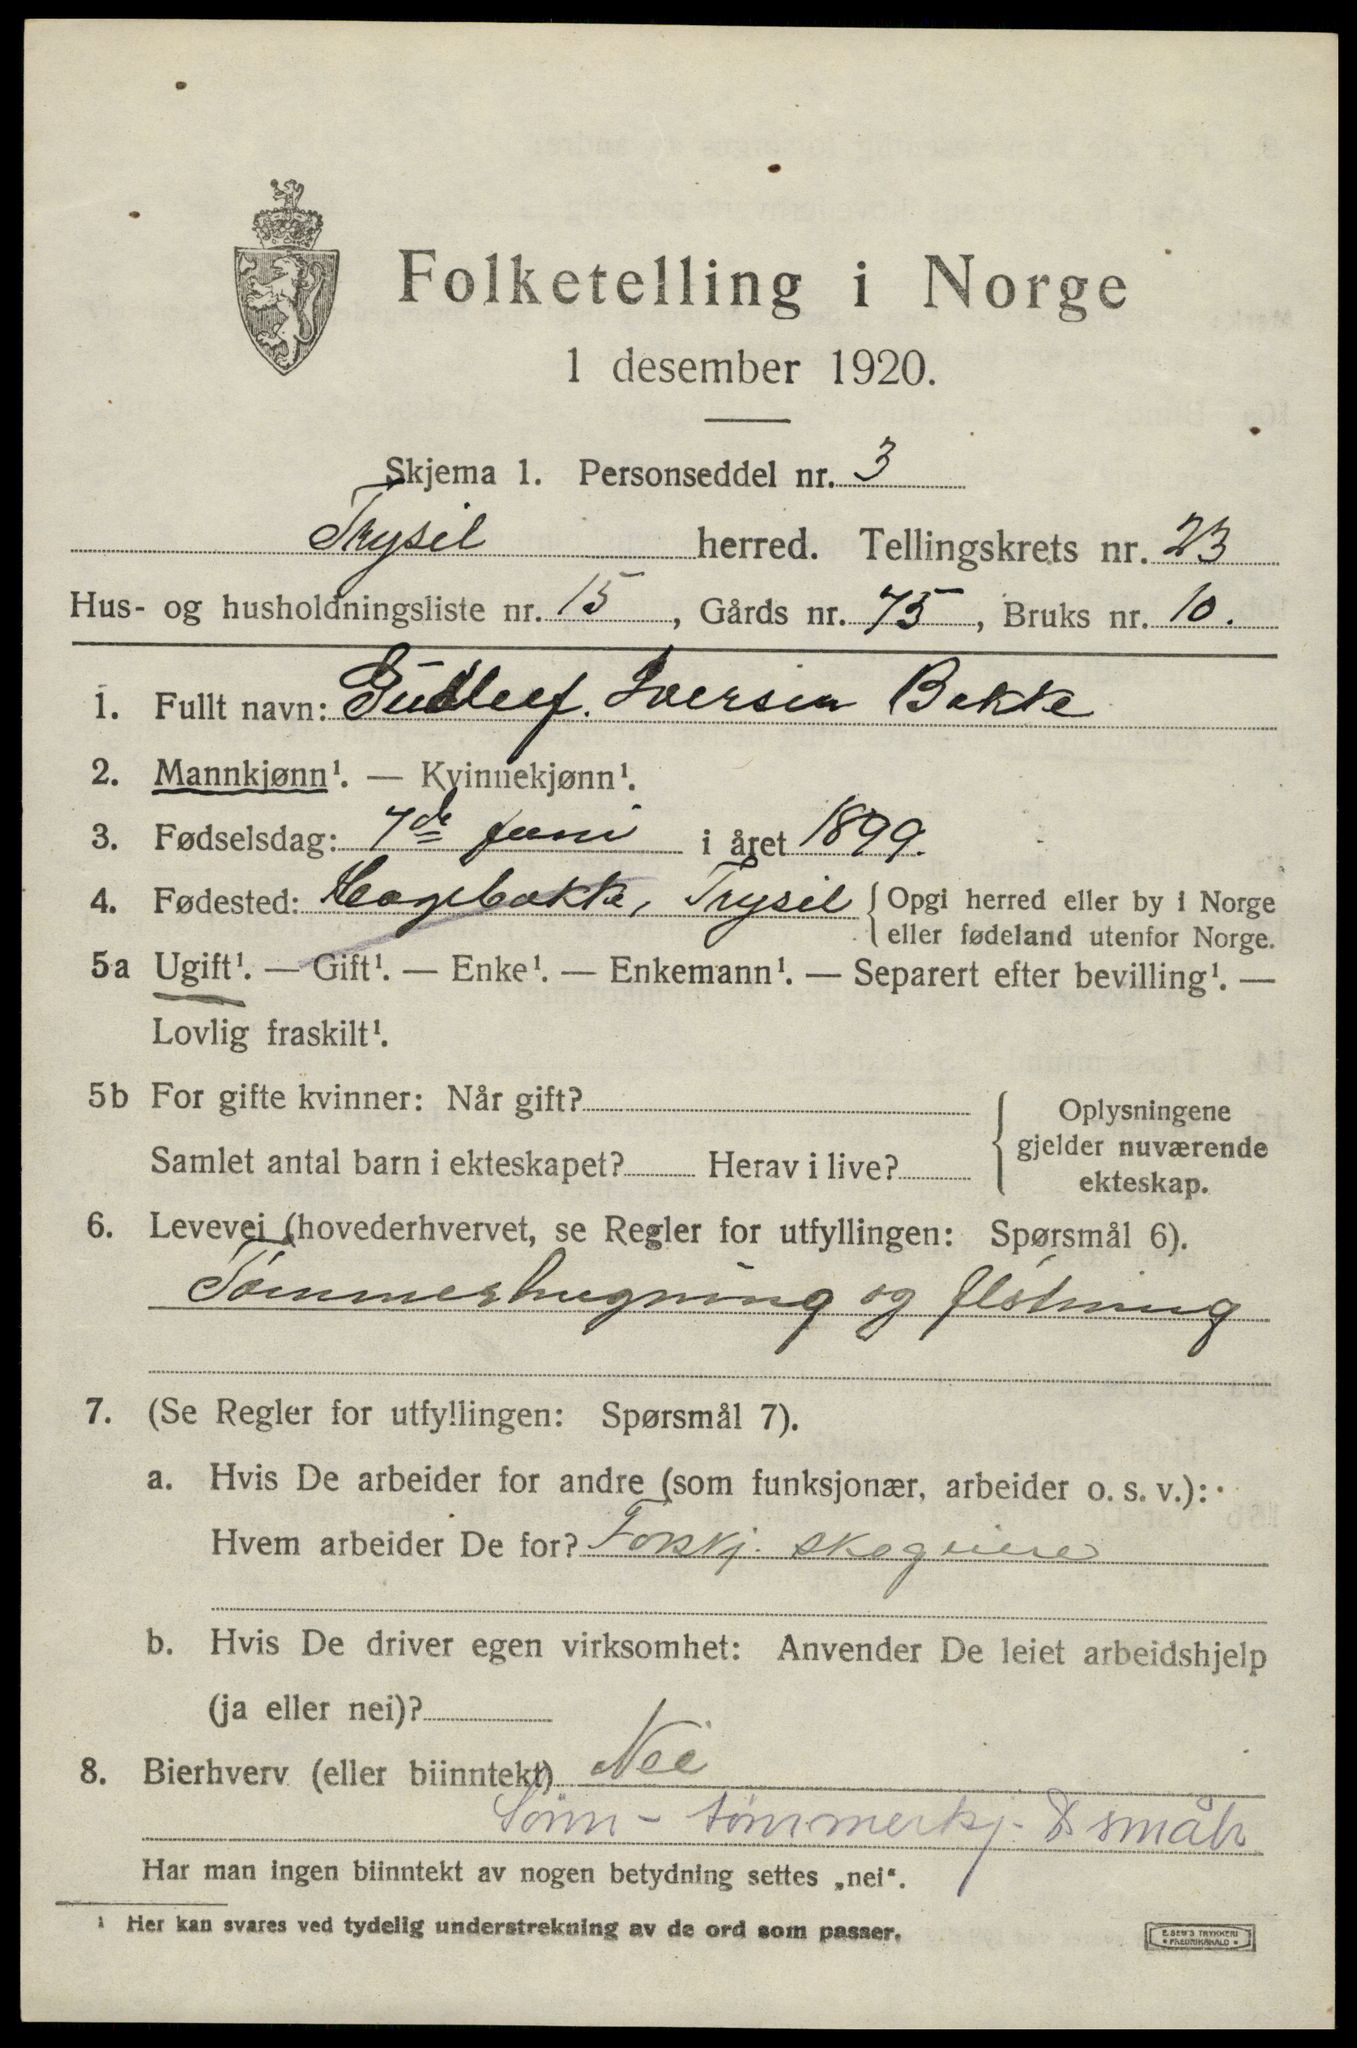 Folketelling i Norge
1 desember 1920.
Skjema 1. Personseddel nr. 3
Trysil herred. Tellingskrets nr. 23
Hus- og husholdningsliste nr. 15, Gårds nr. 75, Bruks nr. 10.
1. Fullt navn: Gudleef. Iversen Bakke
2. Mannkjønn¹. — Kvinnekjønn¹.
3. Fødselsdag: 7de juni i året 1899.
4. Fødested: Hagebakke, Trysil { Opgi herred eller by i Norge
eller fødeland utenfor Norge.
5a Ugift¹. — Gift¹. — Enke¹. — Enkemann¹. — Separert efter bevilling¹. —
Lovlig fraskilt¹.
5b For gifte kvinner: Når gift?
Samlet antal barn i ekteskapet? Herav i live?
{ Oplysningene
gjelder nuværende
ekteskap.
6. Levevei (hovederhvervet, se Regler for utfyllingen: Spørsmål 6).
Tømmerhugning og fløtning
7. (Se Regler for utfyllingen: Spørsmål 7).
a. Hvis De arbeider for andre (som funksjonær, arbeider o. s. v.):
Hvem arbeider De for? Forskj. skogeiere
b. Hvis De driver egen virksomhet: Anvender De leiet arbeidshjelp
(ja eller nei)?
8. Bierhverv (eller biinntekt) Nei
Sønn - tømmerkj. & småbr
Har man ingen biinntekt av nogen betydning settes „nei“.
¹ Her kan svares ved tydelig understrekning av de ord som passer.
E. SEM'S TRYKKERI
• FREDRIKSHALD •